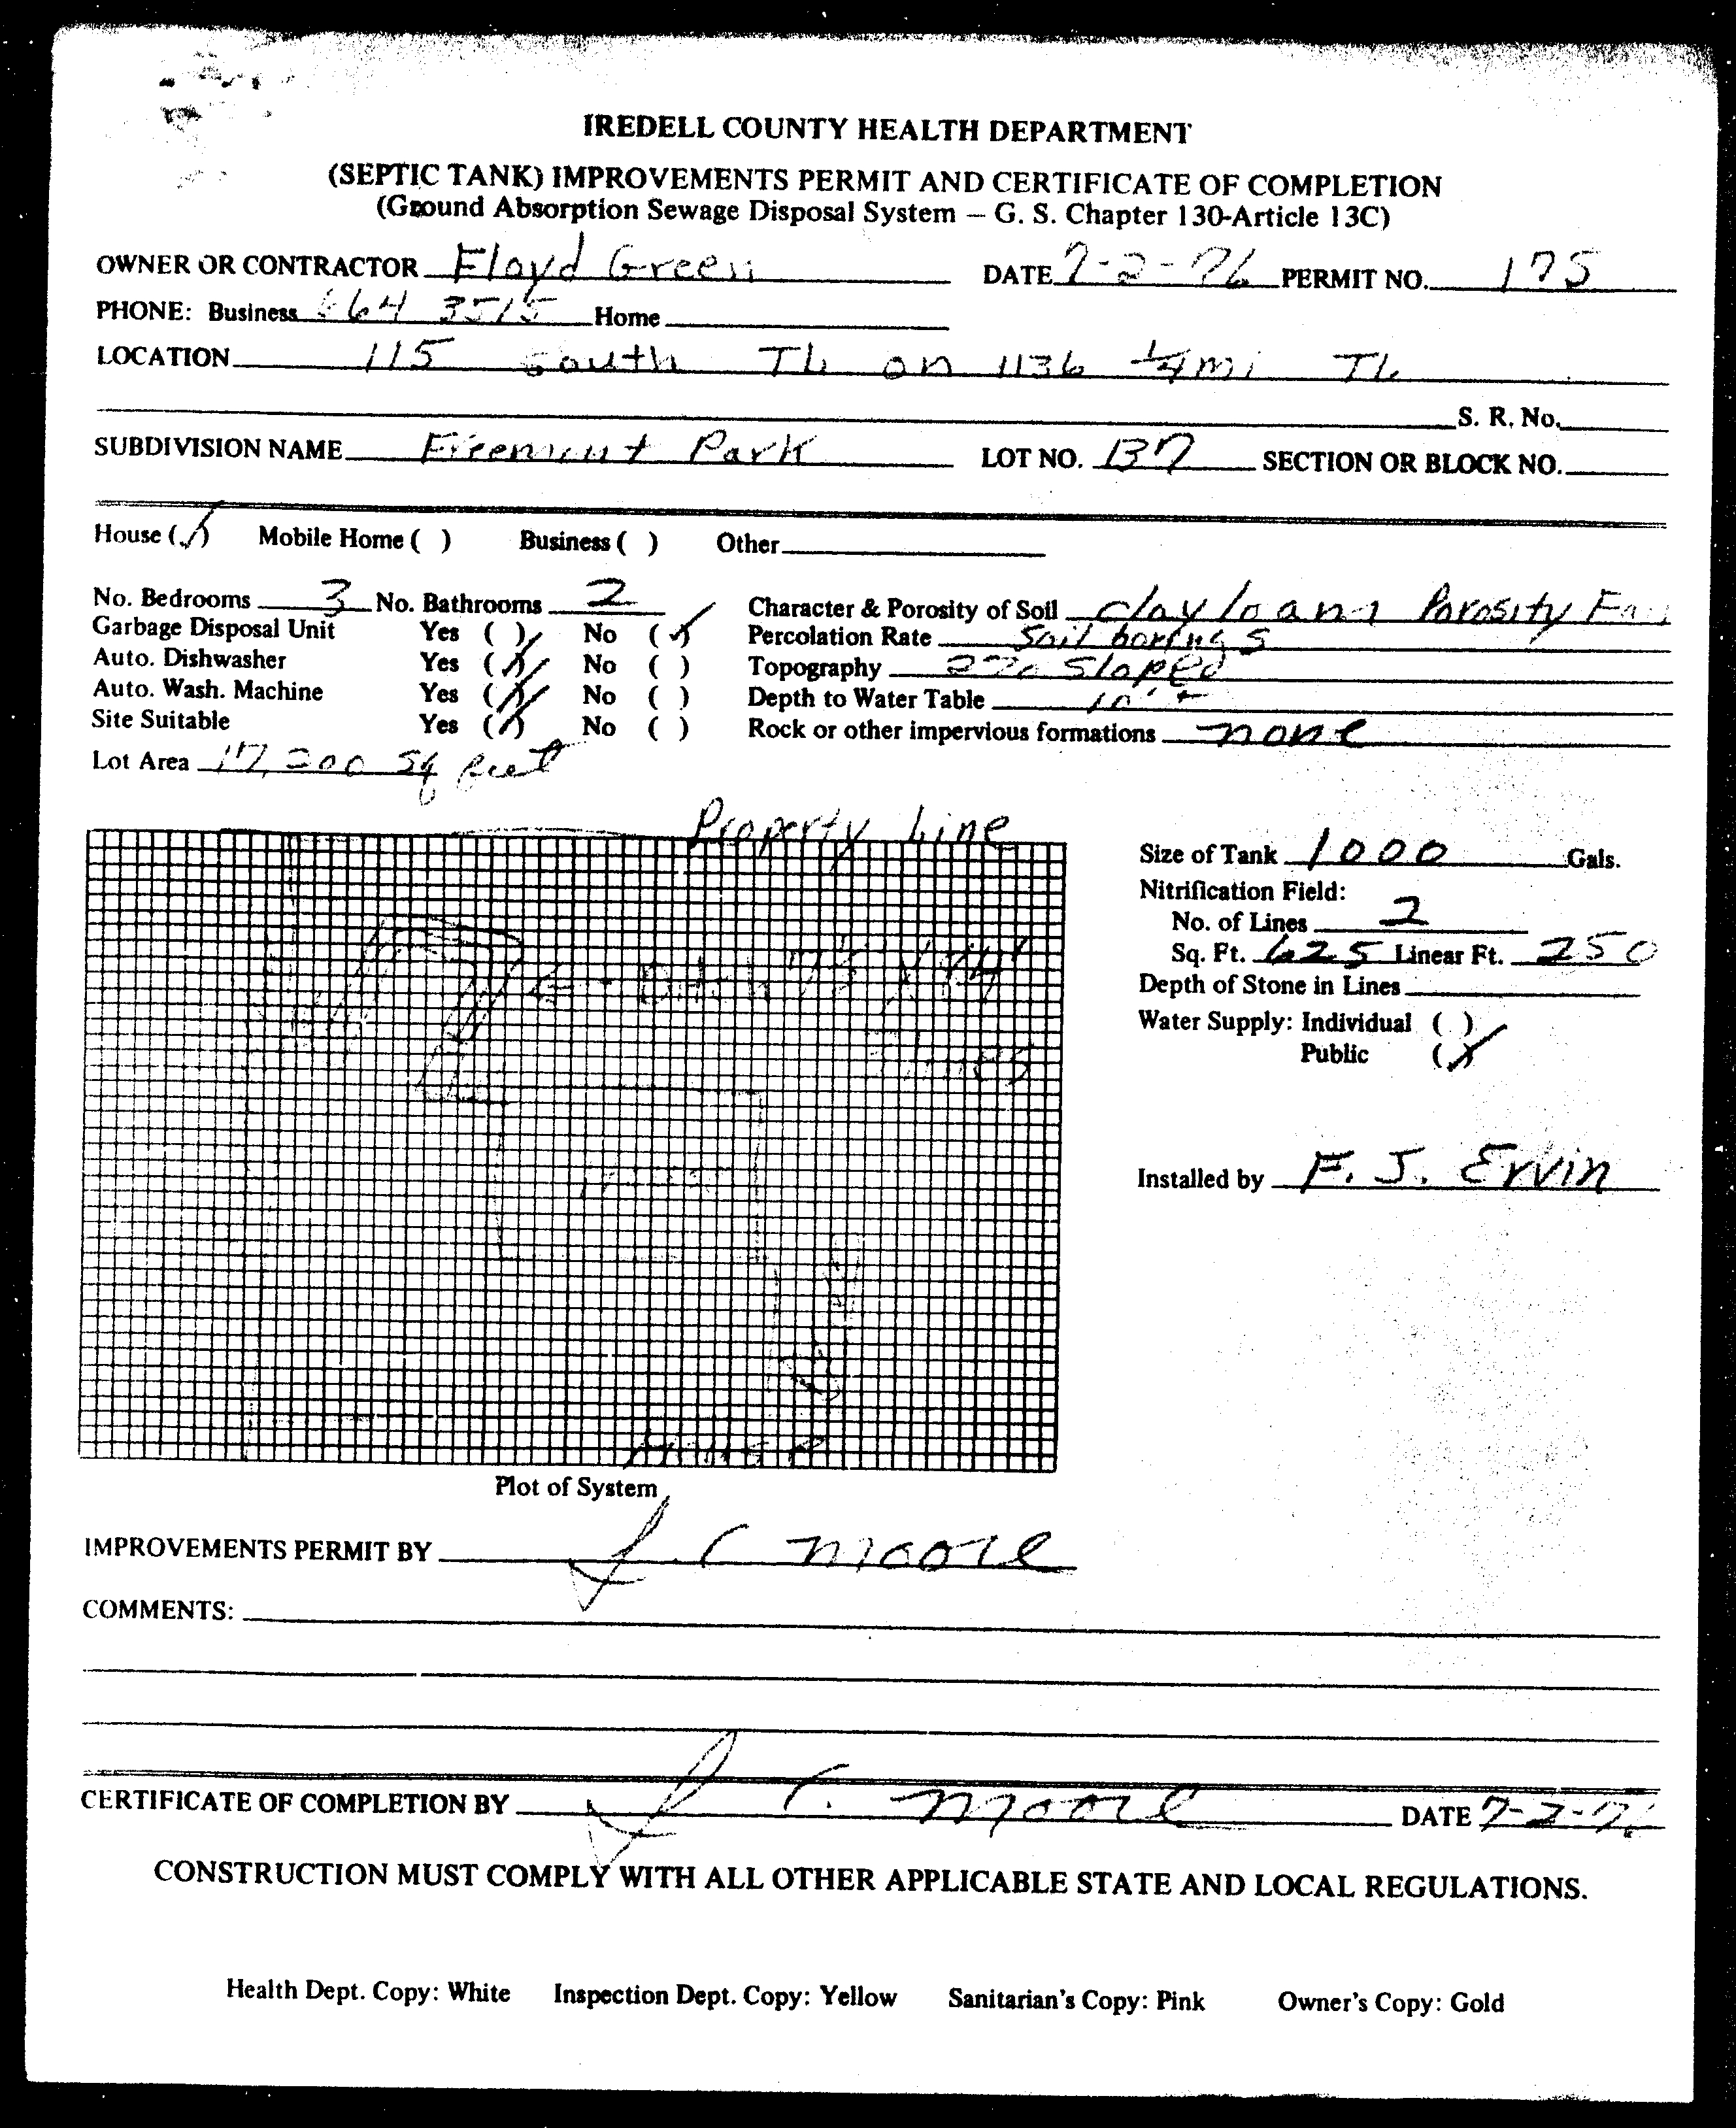 IREDELL COUNTY HEALTH DEPARTMENT
(SEPTIC TANK) IMPROVEMENTS PERMIT AND CERTIFICATE OF COMPLETION
(Ground Absorption Sewage Disposal System – G. S. Chapter 130-Article 13C)
OWNER OR CONTRACTOR Floyd Green DATE 7-2-76 PERMIT NO. 175
PHONE: Business 664 3515 Home
LOCATION 115 South TL on 1136 1/4 mi TL
S. R. No.
SUBDIVISION NAME Park LOT NO. 137 SECTION OR BLOCK NO.
House (✓) Mobile Home ( ) Business ( ) Other
No. Bedrooms 3 No. Bathrooms 2 Character & Porosity of Soil clay loam Porosity
Garbage Disposal Unit Yes ( ) No (✓) Percolation Rate Soil borings
Auto. Dishwasher Yes (✓) No ( ) Topography 2% Sloped
Auto. Wash. Machine Yes (✓) No ( ) Depth to Water Table 10' +
Site Suitable Yes (✓) No ( ) Rock or other impervious formations none
Lot Area 17,200 sq feet
Property Line
Size of Tank 1000 Gals.
Nitrification Field:
No. of Lines 2
Sq. Ft. 625 Linear Ft. 250
Depth of Stone in Lines
Water Supply: Individual ( )
Public (✓)
Installed by F. J. Ervin
Plot of System
IMPROVEMENTS PERMIT BY J. C Moore
COMMENTS:
CERTIFICATE OF COMPLETION BY J C. Moore DATE 7-2-76
CONSTRUCTION MUST COMPLY WITH ALL OTHER APPLICABLE STATE AND LOCAL REGULATIONS.
Health Dept. Copy: White Inspection Dept. Copy: Yellow Sanitarian's Copy: Pink Owner's Copy: Gold